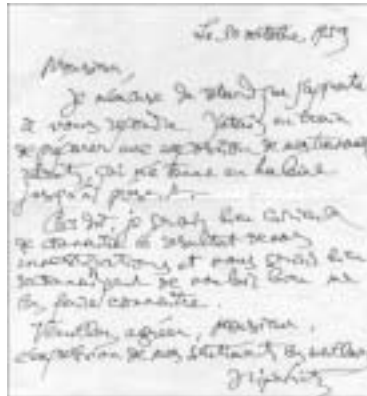 Le 30 octobre 1959
Monsieur,
Je m'excuse du retard que j'apporte
à vous répondre. J'étais en train
de préparer une exposition de mes travaux
récents, qui me tenue en haleine
jusqu'à présent.
Ceci dit, je serais bien curieux
de connaître le résultat de vos
investigations et vous serais bien
reconnaissant de vouloir bien me
les faire connaître.
Veuillez agréer, Monsieur,
l'expression de mes sentiments